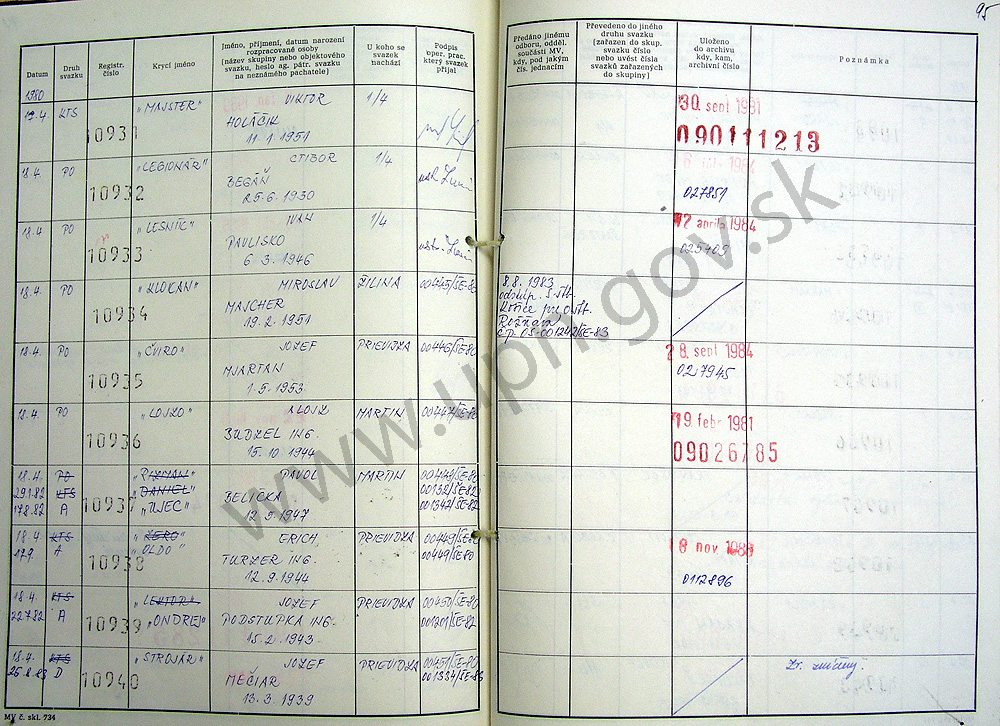 95
Datum
Druh svazku
Registr. číslo
Krycí jméno
Jméno, příjmení, datum narození rozpracované osoby (název skupiny nebo objektového svazku, heslo ag. pátr. svazku na neznámého pachatele)
U koho se svazek nachází
Podpis oper. prac. který svazek přijal
Předáno jinému odboru, odděl. součásti MV, kdy, pod jakým čís. jednacím
Převedeno do jiného druhu svazku (zařazen do skup. svazku číslo nebo uvést čísla svazků zařazených do skupiny)
Uloženo do archivu kdy, kam, archivní číslo
Poznámka
1980
17.4 KTS 10931 "MAJSTER" VIKTOR 1/4 30. sept 1981
HOLÁČIK 090111213
11.1.1951
18.4. PO 10932 "LEGIONÁR" CTIBOR 1/4 1984
BEGÁŇ 027851
25.6.1930
18.4. PO 10933 "LESNÍK" IVAN 1/4 12 apríla 1984
PAULISKO 025109
6.3.1946
18.4. PO 10934 "KLOKAN" MIROSLAV ŽILINA 00445/ŠE-80 8.8.1983
MAJCHER odstup. S-ŠtB
19.2.1951 Košice pre OŠtB
Rožňava
čp. OS-001242/SE-83
18.4. PO 10935 "ČVIRO" JOZEF PRIEVIDZA 00446/ŠE-80 28. sept 1984
MJARTAN 027945
1.5.1953
18.4. PO 10936 "LOJZO" ALOJZ MARTIN 00447/ŠE-80 19. febr 1981
BUDZEL ING. 09026785
15.10.1944
18.4. PO 10937 PAVOL MARTIN 00448/ŠE-80
29.1.82 KTS "DANIEL" BELIČKA 00132/ŠE-82
17.8.82 A "UJEC" 12.9.1947 001342/ŠE-82
18.4 KTS 10938 "ŽERO" ERICH PRIEVIDZA 00449/ŠE-80 8 nov. 1988
17.9 A "OLDO" TURZER ING. 00449/ŠE-80 0112896
12.9.1944
18.4. KTS 10939 "LEKTOR" JOZEF PRIEVIDZA 00450/ŠE-80
22.7.82 A "ONDREJ" PODSTUPKA ING. 001201/ŠE-82
15.2.1943
18.4. KTS 10940 "STROJÁR" JOZEF PRIEVIDZA 00451/ŠE-80 Zv. zničený.
26.8.83 D MEČIAR 001334/ŠE-83
13.3.1939
MV č. skl. 734
www.upn.gov.sk